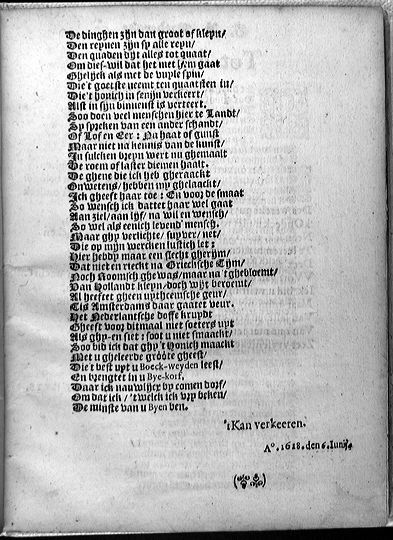 De dinghen zijn dan groot of kleyn/
Den reynen zijn sy alle reyn/
Den quaden dijt alles tot quaat/
Om dies-wil dat het met hem gaat
Ghelijck als met de vuyle spin/
Die 't goetste neemt ten quaatsten in/
Die 't honich in fenijn verkeert/
Alst in sijn binnenst is verteert.
Soo doen veel menschen hier te Landt/
Sy spreken van een ander schandt/
Of Lof en Eer: Na haat of gunst
Maar niet na kennis van de kunst/
In sulcken breyn wert nu ghemaalt
De roem of laster diemen haalt.
De ghene die ick heb gheraackt
Onwetens/ hebben my ghelaackt/
Ick gheeft haar toe: En voor de smaat
So wensch ick dattet haar wel gaat
Aan ziel/ aan lijf/ na wil en wensch/
So wel als eenich levend' mensch.
Maar ghy verlichte/ suyver/ net/
Die op mijn wercken lustich let:
Hier hebdy maar een slecht gherijm/
Dat niet en rieckt na Grieksche Tijm/
Noch Roomsch ghewas/ maar na 't ghebloemt/
Van Hollandt kleyn/ doch wijt beroemt/
Al heeftet gheen uytheemsche geur/
Tis Amsterdams daar gaatet veur.
Het Nederlantsche doffe kruydt
Gheeft voor ditmaal niet soeters uyt
Als ghy-en siet: soot u niet smaackt/
Soo bid ick dat ghy 't Honich maackt
Met u gheleerde gróóte gheest/
Die 't best uyt u Boeck-weyden leest/
En brengtet in u Bye-korf,
Daar ick nauwlijcx by comen dorf/
Om dat ick/ 't welck ick vry beken/
De minste van u Byen ben.
't Kan verkeeren.
A°. 1618. den 6. Iunij.